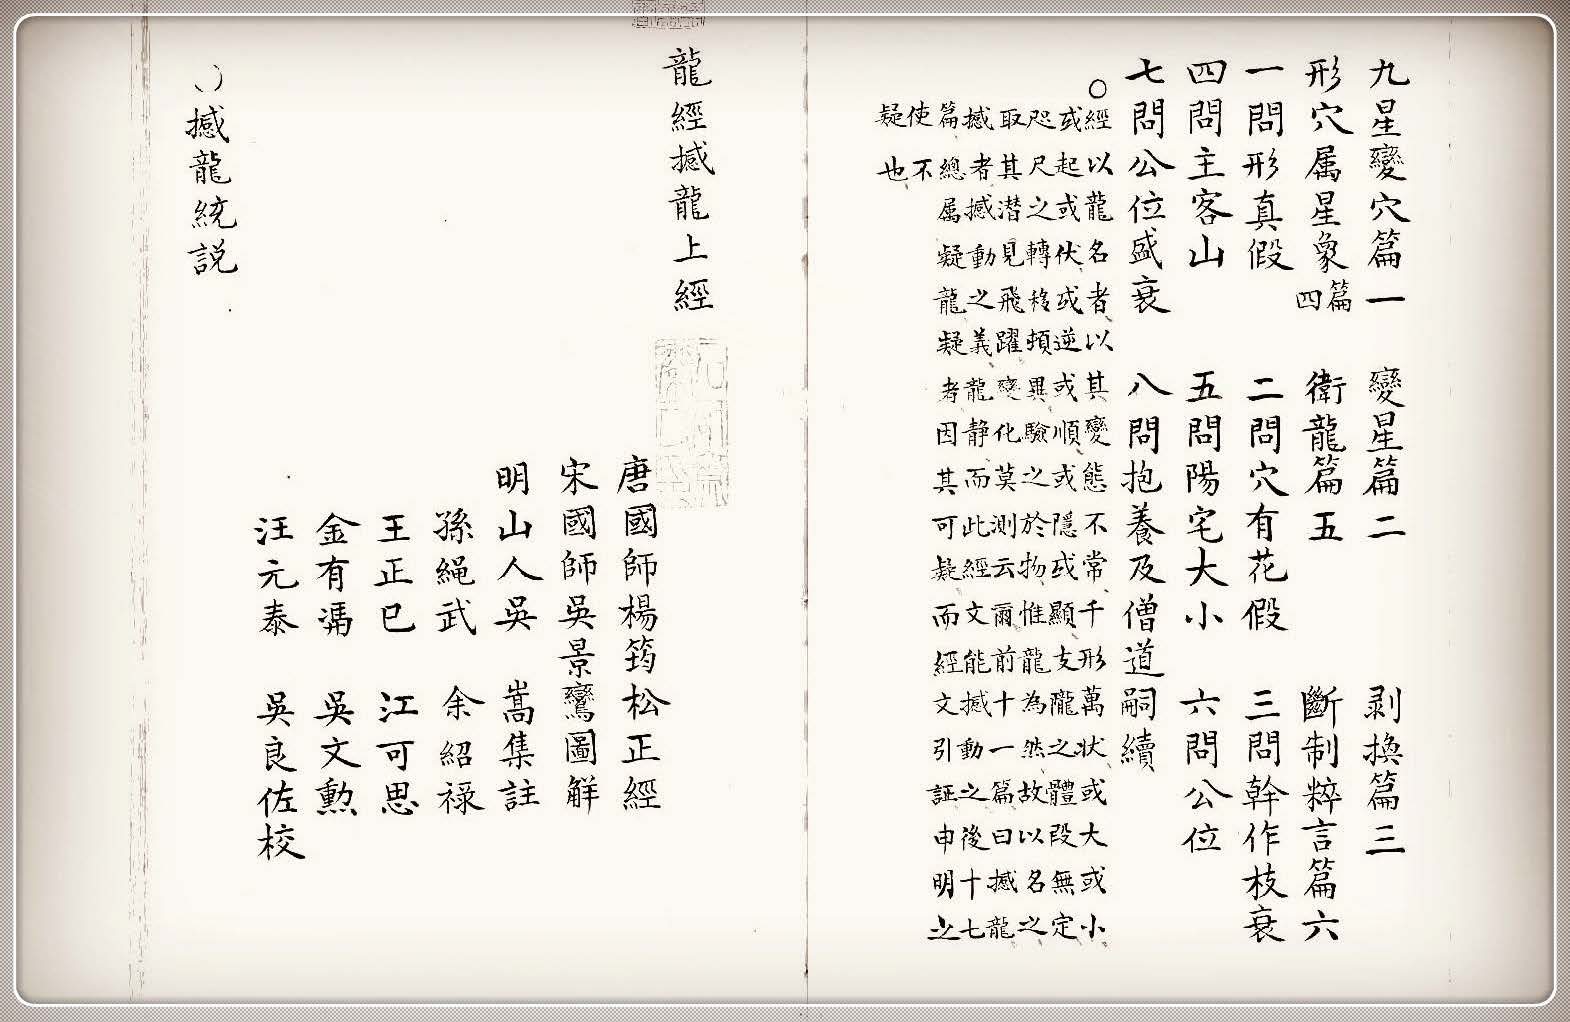 九星變穴篇一 變星篇二 剥換篇三
形穴属星象篇四 衛龍篇五 斷制粹言篇六
一問形真假 二問穴有花假 三問幹作枝衰
四問主客山 五問陽宅大小 六問公位
七問公位盛衰 八問抱養及僧道嗣續
○經以龍名者以其變態不常千形萬状或大或小
或起或伏或逆或順或隱或顯支隴之體段無定
咫尺之轉移頻異驗之於物惟龍為然故以名之
取其潜見飛躍變化莫測云爾前十一篇曰撼龍
撼者撼動之義龍静而此經文能撼動之後十七
篇總属疑龍疑者因其可疑而經文引証申明之
使不
疑也
龍經撼龍上經
唐國師楊筠松正經
宋國師吳景鸞圖觧
明山人吳 嵩集註
孫繩武 余紹祿
王正巳 江可思
金有 吳文勲
汪元泰 吳良佐校
○撼龍統説